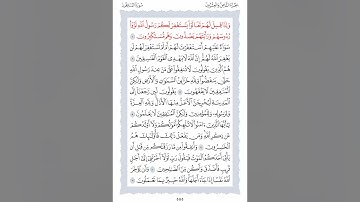 الجزء الثامن والعشرون سورة المنافقون
وَإِذَا قِيلَ لَهُمْ تَعَالَوْا۟ يَسْتَغْفِرْ لَكُمْ رَسُولُ ٱللَّهِ لَوَّوْا۟
رُءُوسَهُمْ وَرَأَيْتَهُمْ يَصُدُّونَ وَهُم مُّسْتَكْبِرُونَ ٥
سَوَآءٌ عَلَيْهِمْ أَسْتَغْفَرْتَ لَهُمْ أَمْ لَمْ تَسْتَغْفِرْ لَهُمْ لَن يَغْفِرَ
ٱللَّهُ لَهُمْ إِنَّ ٱللَّهَ لَا يَهْدِى ٱلْقَوْمَ ٱلْفَٰسِقِينَ ٦
هُمُ ٱلَّذِينَ يَقُولُونَ لَا تُنفِقُوا۟ عَلَىٰ مَنْ عِندَ رَسُولِ ٱللَّهِ
حَتَّىٰ يَنفَضُّوا۟ وَلِلَّهِ خَزَآئِنُ ٱلسَّمَٰوَٰتِ وَٱلْأَرْضِ وَلَٰكِنَّ
ٱلْمُنَٰفِقِينَ لَا يَفْقَهُونَ ٧ يَقُولُونَ لَئِن رَّجَعْنَآ إِلَى
ٱلْمَدِينَةِ لَيُخْرِجَنَّ ٱلْأَعَزُّ مِنْهَا ٱلْأَذَلَّ وَلِلَّهِ ٱلْعِزَّةُ
وَلِرَسُولِهِۦ وَلِلْمُؤْمِنِينَ وَلَٰكِنَّ ٱلْمُنَٰفِقِينَ لَا يَعْلَمُونَ ٨
يَٰٓأَيُّهَا ٱلَّذِينَ ءَامَنُوا۟ لَا تُلْهِكُمْ أَمْوَٰلُكُمْ وَلَآ أَوْلَٰدُكُمْ
عَن ذِكْرِ ٱللَّهِ وَمَن يَفْعَلْ ذَٰلِكَ فَأُو۟لَٰٓئِكَ هُمُ
ٱلْخَٰسِرُونَ ٩ وَأَنفِقُوا۟ مِن مَّا رَزَقْنَٰكُم مِّن قَبْلِ أَن
يَأْتِىَ أَحَدَكُمُ ٱلْمَوْتُ فَيَقُولَ رَبِّ لَوْلَآ أَخَّرْتَنِىٓ إِلَىٰٓ أَجَلٍ
قَرِيبٍ فَأَصَّدَّقَ وَأَكُن مِّنَ ٱلصَّٰلِحِينَ ١٠ وَلَن يُؤَخِّرَ
ٱللَّهُ نَفْسًا إِذَا جَآءَ أَجَلُهَا وَٱللَّهُ خَبِيرٌۢ بِمَا تَعْمَلُونَ ١١
٥٥٥